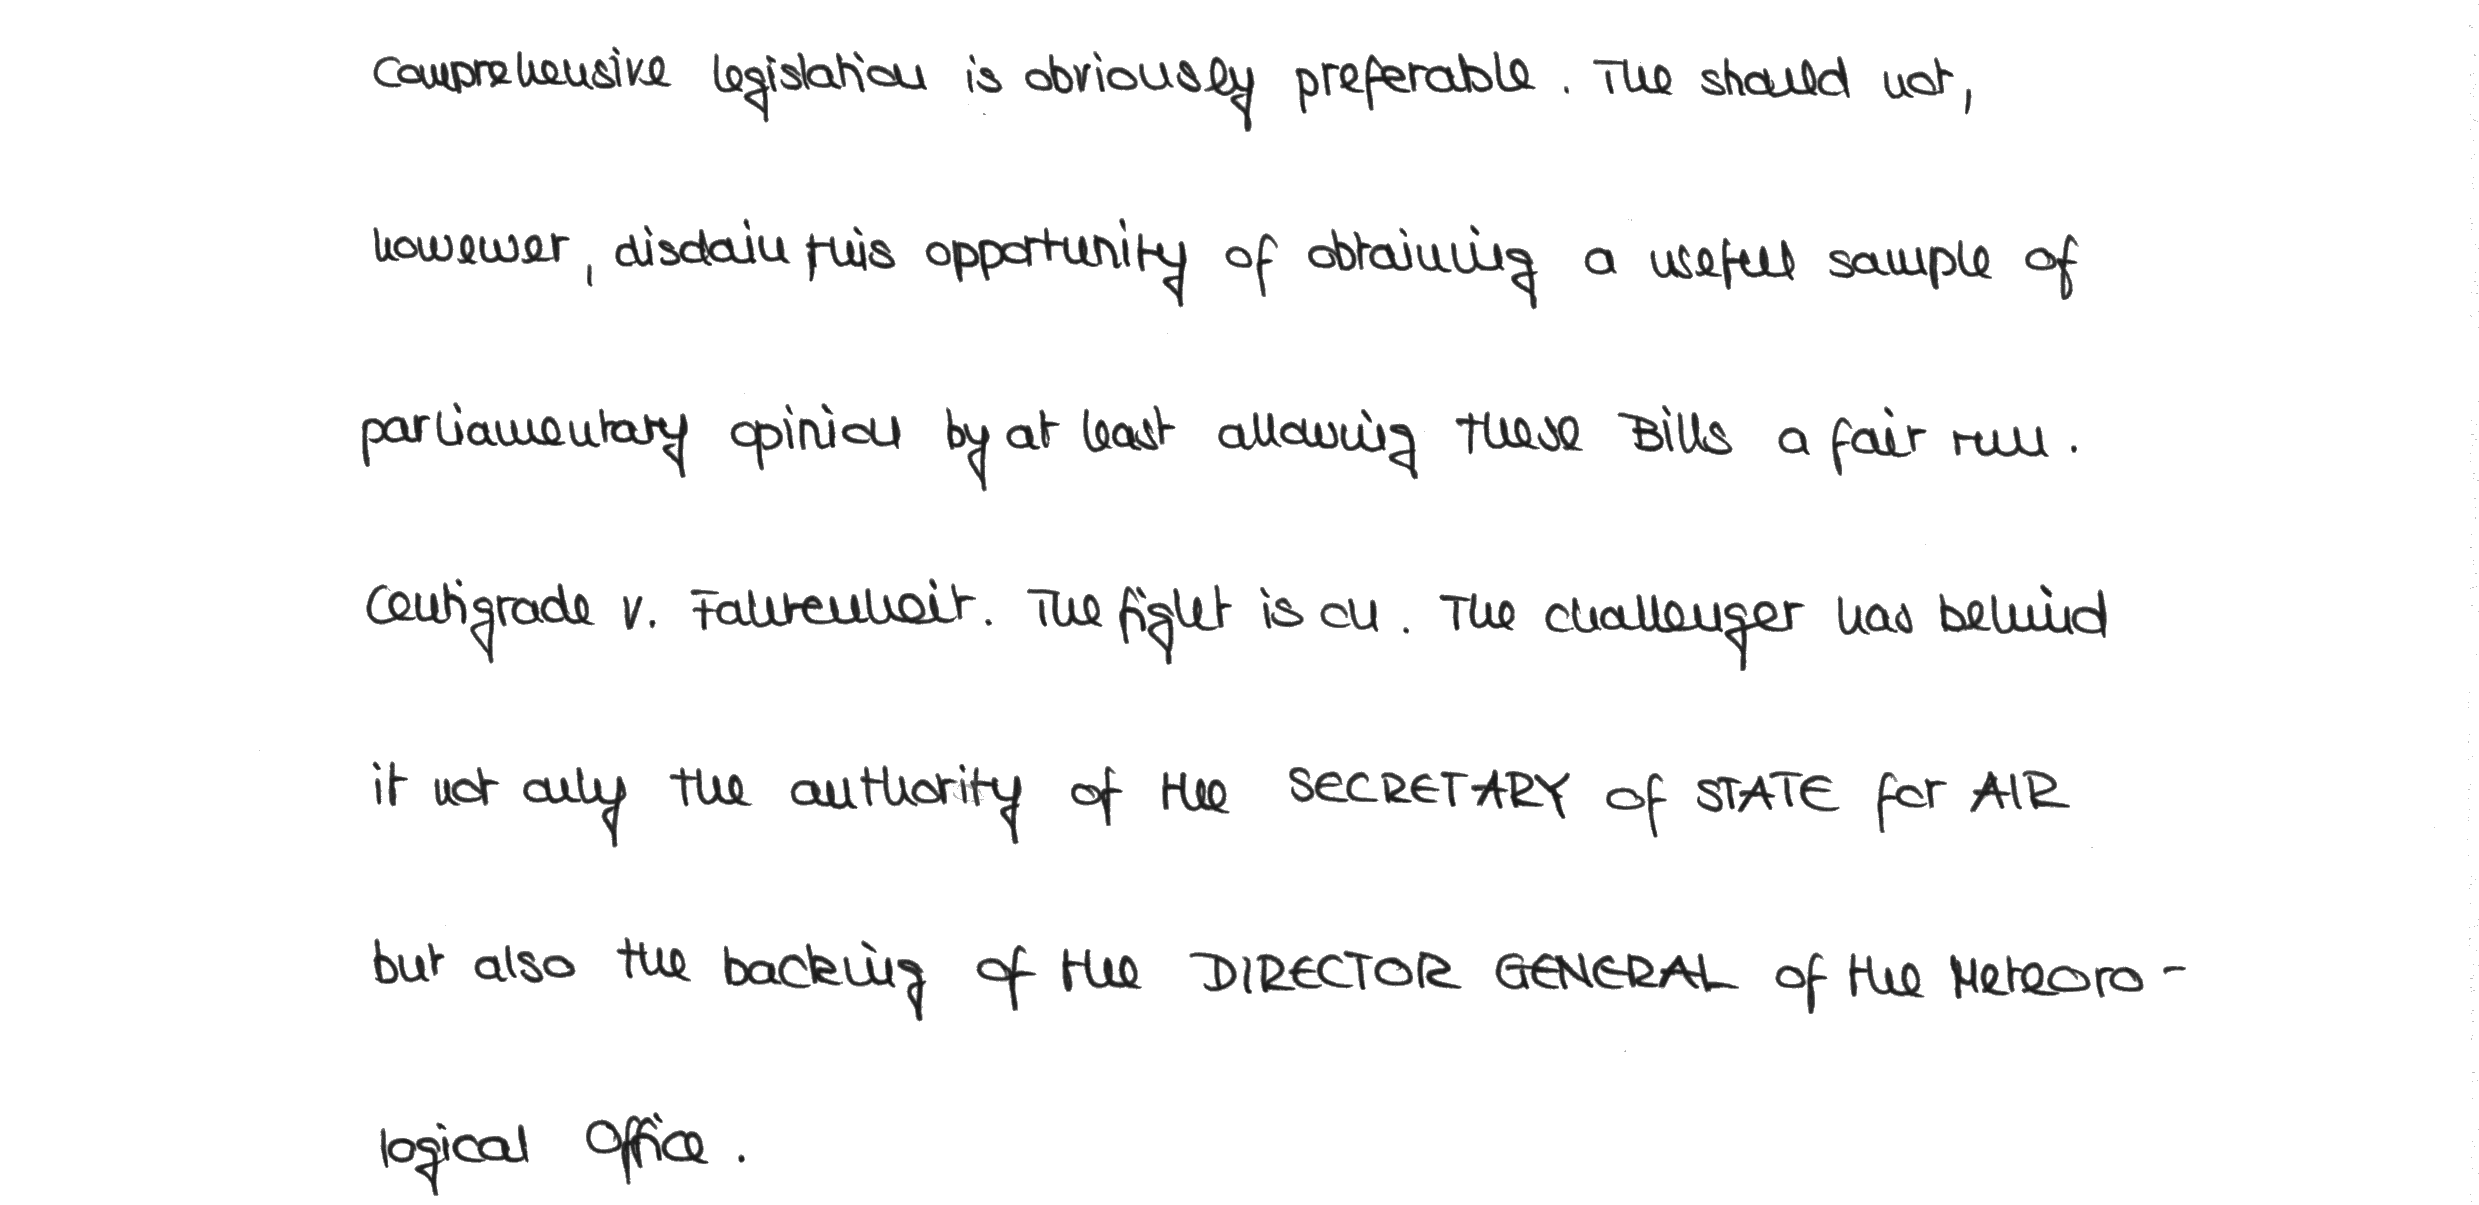 Comprehensive legislation is obviously preferable. The should not,
howewer, disdain this opportunity of obtaining a useful sample of
parliamentary opinion by at least allowing these Bills a fair run.
Centigrade v. Fahrenheit. The fight is on. The challenger has behind
it not only the authority of the SECRETARY of STATE for AIR
but also the backing of the DIRECTOR GENERAL of the Meteoro-
logical Office.